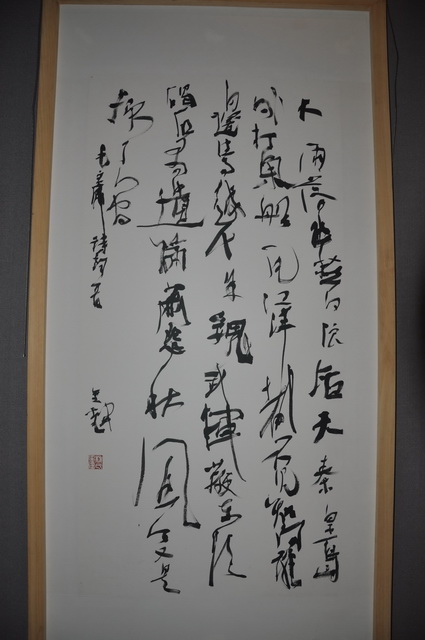 大雨落幽燕白浪滔天秦皇島
外打魚船一片汪洋都不見知向誰
邊往事越千年魏武揮鞭東臨
碣石有遺篇蕭瑟秋風今又是
換了人间
毛主席詩詞